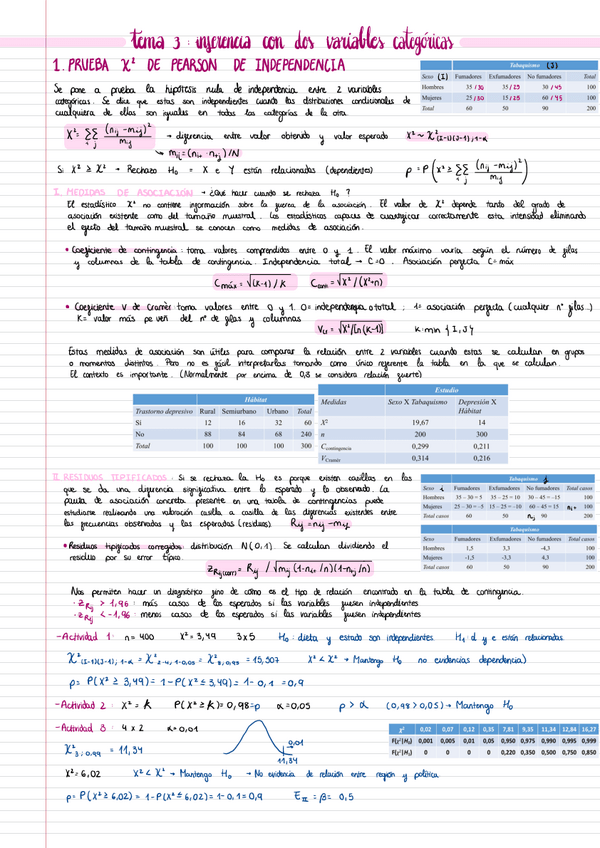 tema 3 : inferencia con dos variables categóricas
1. PRUEBA χ² DE PEARSON DE INDEPENDENCIA
Tabaquismo (J)
Sexo (I) Fumadores Exfumadores No fumadores Total
Hombres 35 / 30 35 / 25 30 / 45 100
Mujeres 25 / 30 15 / 25 60 / 45 100
Total 60 50 90 200
Se pone a prueba la hipótesis nula de independencia entre 2 variables
categóricas. Se dice que estas son independientes cuando las distribuciones condicionales de
cualquiera de ellas son iguales en todas las categorías de la otra.
X² = ΣΣ (nij - mij)² / mij → diferencia entre valor obtenido y valor esperado X² ~ χ² (I-1)(J-1), 1-α
i j
→ mij = (ni+ · n+j) / N
Si X² ≥ χ² → Rechazo H₀ = X e Y están relacionadas (dependientes) p = P (χ² ≥ ΣΣ (nij - mij)² / mij)
I. MEDIDAS DE ASOCIACIÓN → ¿Qué hacer cuando se rechaza H₀ ?
El estadístico X² no contiene información sobre la fuerza de la asociación. El valor de X² depende tanto del grado de
asociación existente como del tamaño muestral. Los estadísticos capaces de cuantificar correctamente esta intensidad eliminando
el efecto del tamaño muestral se conocen como medidas de asociación.
• Coeficiente de contingencia : toma valores comprendidos entre 0 y 1. El valor máximo varía según el número de filas
y columnas de la tabla de contingencia. Independencia total → C=0. Asociación perfecta C=máx
Cmáx = √(K-1) / K Ccont = √X² / (X²+n)
• Coeficiente V de Cramer toma valores entre 0 y 1. 0= independencia total ; 1= asociación perfecta (cualquier nº filas..)
K= valor más pequeñ del nº de filas y columnas
Vcr = √X²/[n (K-1)] K: min {I,J}
Estas medidas de asociación son útiles para comparar la relación entre 2 variables cuando estas se calculan en grupos
o momentos distintos. Pero no es fácil interpretarlas tomando como único referente la tabla en la que se calculan.
El contexto es importante. (Normalmente por encima de 0,8 se considera relación fuerte)
Hábitat
Trastorno depresivo Rural Semiurbano Urbano Total
Sí 12 16 32 60
No 88 84 68 240
Total 100 100 100 300
Estudio
Medidas Sexo X Tabaquismo Depresión X Hábitat
X² 19,67 14
n 200 300
Ccontingencia 0,299 0,211
VCramér 0,314 0,216
II RESIDUOS TIPIFICADOS : Si se rechaza la H₀ es porque existen casillas en las
que se da una diferencia significativa entre lo esperado y lo observado. La
pauta de asociación concreta presente en una tabla de contingencias puede
estudiarse realizando una valoración casilla a casilla de las diferencias existentes entre
las frecuencias observadas y las esperadas (residuos) Rij = nij - mij
Tabaquismo j
Sexo i Fumadores Exfumadores No fumadores Total casos
Hombres 35 – 30 = 5 35 – 25 = 10 30 – 45 = –15 100
Mujeres 25 – 30 = –5 15 – 25 = –10 60 – 45 = 15 ni+ 100
Total casos 60 50 n+j 90 200
Tabaquismo
Sexo Fumadores Exfumadores No fumadores Total casos
Hombres 1,5 3,3 -4,3 100
Mujeres -1,5 -3,3 4,3 100
Total casos 60 50 90 200
• Residuos tipificados corregidos: distribución N(0,1). Se calculan dividiendo el
residuo por su error típico.
ZR(ijcorr) = Rij / √mij (1-ni+/n)(1-n+j/n)
Nos permiten hacer un diagnóstico fino de cómo es el tipo de relación encontrado en la tabla de contingencia.
· ZRij > 1,96 : más casos de los esperados si las variables fuesen independientes
· ZRij < -1,96 : menos casos de los esperados si las variables fuesen independientes
-Actividad 1: n= 400 X² = 3,49 3x5 H₀ : dieta y estado son independientes. H₁ : d y e están relacionadas
χ² (I-1)(J-1), 1-α = χ² 2·4, 1-0,05 = χ² 8, 0,95 = 15,507 X² < χ² → Mantengo H₀ no evidencias dependencia)
p= P(X² ≥ 3,49) = 1-P(X² ≤ 3,49) = 1-0,1 = 0,9
-Actividad 2 : X² = k P(X² ≥ k) = 0,98=p α=0,05 p > α (0,98 > 0,05) → Mantengo H₀
-Actividad 3 : 4 x 2 α= 0,01
χ² 3 ; 0,99 = 11,34
0,01
11,34
χ² 0,02 0,07 0,12 0,35 7,81 9,35 11,34 12,84 16,27
F(χ²|H₀) 0,001 0,005 0,01 0,05 0,950 0,975 0,990 0,995 0,999
F(χ²|H₁) 0 0 0 0 0,220 0,350 0,500 0,750 0,850
X² = 6,02 X² < χ² → Mantengo H₀ → No evidencia de relación entre región y política
p= P(X² ≥ 6,02) = 1-P(X² ≤ 6,02) = 1-0,1=0,9 EII = β= 0,5